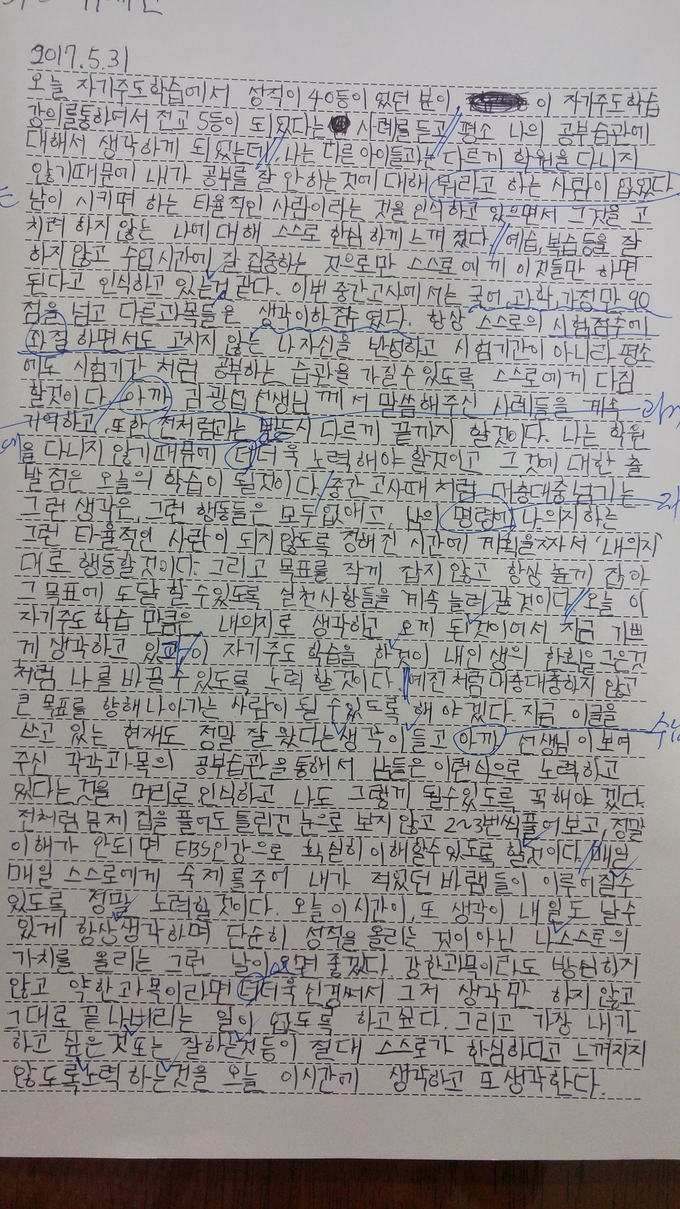 2017.5.31
오늘 자기주도학습에서 성적이 40등이 었던 분이, 이 자기주도학습
강의를통하여서 전교 5등이 되었다는 사례를 듣고 평소 나의 공부습관에
대해서 생각하게 되었는데, 나는 다른 아이들과는 다르게 학원을 다니지
않기때문에 내가 공부를 잘 안하는것에 대해 뭐라고 하는 사람이 없었다
남이 시키면 하는 타율적인 사람이라는 것을 인식하고 있으면서 그것을 고
치려 하지 않는 나에 대해 스스로 한심 하게 느껴 졌다. 예습,복습 등을 잘
하지 않고 수업시간에 잘 집중하는 것으로만 스스로에게 이것들만 하면
된다고 인식하고 있는것 같다. 이번 중간고사에서는 국어,과학,가정만 90
점을 넘고 다른과목들은 생각이하점수 였다. 항상 스스로의 시험점수에
좌절 하면서도 고치지 않는 나 자신을 반성하고 시험기간이 아니라 평소
에도 시험기간 처럼 공부하는 습관을 가질수 있도록 스스로에게 다짐
할것이다. 아까 김광섭 선생님 께서 말씀해주신 사례들을 계속
기억하고, 또한 전처럼과는 반드시 다르게 끝까지 할것이다. 나는 학원
을 다니지 않기때문에 더더욱 노력해야 할것이고 그것에 대한 출
발점은 오늘의 학습이 될것이다. 중간고사때 처럼 대충대충 넘기는
그런 생각은, 그런 행동들은 모두 없애고, 남의 명령에 나의지하는
그런 타율적인 사람이 되지않도록 정해진 시간에 계획을짜서 '내의지
대로 행동할것이다. 그리고 목표를 작게 잡지 않고 항상 높게 잡아
그 목표에 도달 할수있도록 실천사항들을 계속 늘려 갈것이다. 오늘 이
자기주도 학습 만큼은 내의지로 생각하고 오게 된것이어서 지금 기쁘
게 생각하고 있 이 자기주도 학습을 한것이 내인생의 한획을 그은것
처럼 나를 바꿀수 있도록 노력 할것이다. 예전처럼 대충대충하지 않고
큰 목표를 향해나아가는 사람이 될 수있도록 해 야겠다. 지금 이글을
쓰고 있는 현재도 정말 잘 왔다는생각이들고 아까 선생님이 보여
주신 각각과목의 공부습관을 통해서 남들은 이런식으로 노력하고
있다는것을 머리로 인식하고 나도 그렇게 될수있도록 꼭 해야 겠다.
전처럼 문제집을 풀어도 틀린건 눈으로 보지 않고 2~3번씩풀어 보고, 정말
이해가 안되면 EBS인강으로 확실히 이해할수있도록 할것이다. 매일
매일 스스로에게 숙제를주어 내가 적었던 바램들이 이루어질수
있도록 정말 노력할것이다. 오늘 이시간이, 또 생각이 내일도 날수
있게 항상생각하며 단순히 성적을 올리는 것이아닌 나스스로의
가치를 올리는 그런 날이오면 좋겠다. 강한과목이라도 방심하지
않고 약한과목이라면 더더욱 신경써서 그저 생각만 하지 않고
그대로 끝나버리는 일이 없도록 하고싶다. 그리고 가장 내가
하고 싶은 것또는 잘하는것등이 절대 스스로가 한심하다고 느껴지지
않도록노력 하는것을 오늘 이시간에 생각하고 또 생각한다.